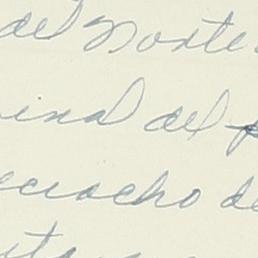 del Norte.
ina del
eciocho de